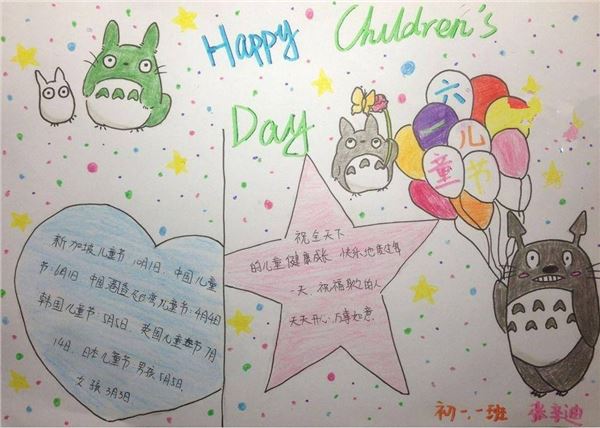 Happy Children's
Day
六
一儿
童节
新加坡儿童节 10月1日. 中国儿童
节:6月1日. 中国 台湾儿童节:4月4日
韩国儿童节 5月5日. 英国儿童节 7月
14日. 日本儿童节 男孩 5月5日.
女孩 3月3日
祝全天下
的儿童健康成长 快乐地度过每
一天. 祝福 的人
天天开心.万事如意.
初一.一班 张 迪